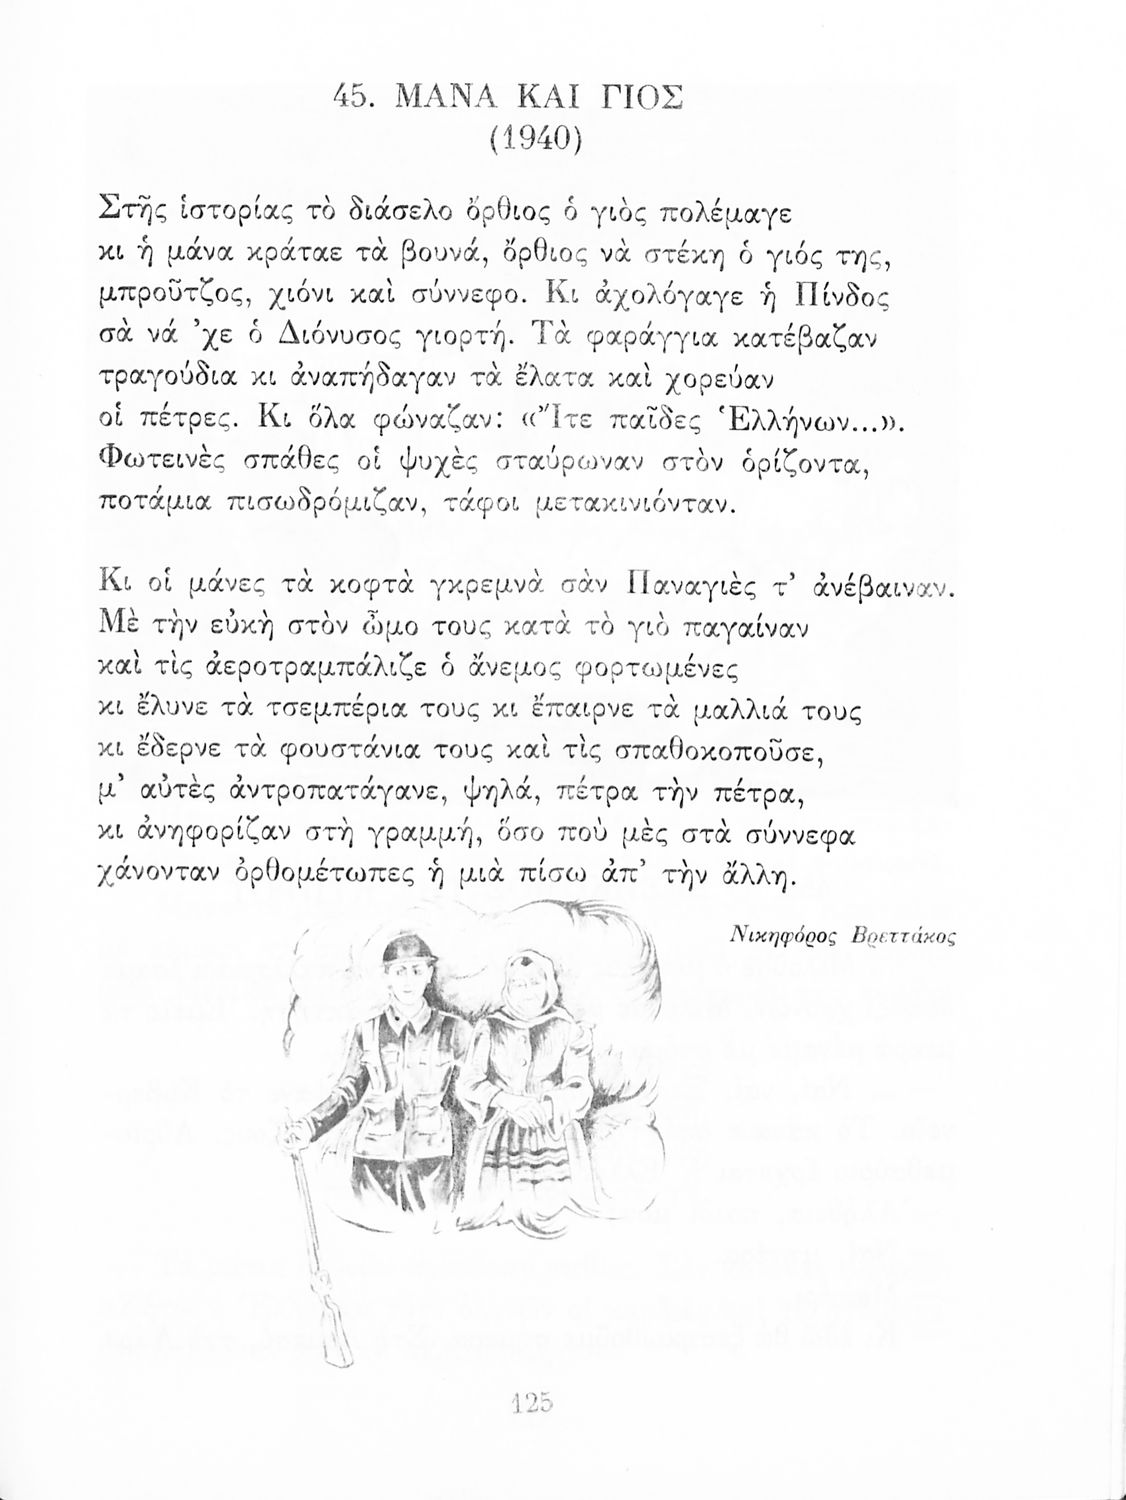 45. ΜΑΝΑ ΚΑΙ ΓΙΟΣ
(1940)
Στῆς ἱστορίας τὸ διάσελο ὄρθιος ὁ γιὸς πολέμαγε
κι ἡ μάνα κράταε τὰ βουνά, ὄρθιος νὰ στέκη ὁ γιός της,
μπροῦτζος, χιόνι καὶ σύννεφο. Κι ἀχολόγαγε ἡ Πίνδος
σὰ νά ’χε ὁ Διόνυσος γιορτή. Τὰ φαράγγια κατέβαζαν
τραγούδια κι ἀναπήδαγαν τὰ ἔλατα καὶ χορεύαν
οἱ πέτρες. Κι ὅλα φώναζαν: «Ἴτε παῖδες Ἑλλήνων...».
Φωτεινὲς σπάθες οἱ ψυχὲς σταύρωναν στὸν ὁρίζοντα,
ποτάμια πισωδρόμιζαν, τάφοι μετακινιόνταν.
Κι οἱ μάνες τὰ κοφτὰ γκρεμνὰ σὰν Παναγιὲς τ’ ἀνέβαιναν.
Μὲ τὴν εὐκὴ στὸν ὦμο τους κατὰ τὸ γιὸ παγαίναν
καὶ τὶς ἀεροτραμπάλιζε ὁ ἄνεμος φορτωμένες
κι ἔλυνε τὰ τσεμπέρια τους κι ἔπαιρνε τὰ μαλλιά τους
κι ἔδερνε τὰ φουστάνια τους καὶ τὶς σπαθοκοποῦσε,
μ’ αὐτὲς ἀντροπατάγανε, ψηλά, πέτρα τὴν πέτρα,
κι ἀνηφορίζαν στὴ γραμμή, ὅσο ποὺ μὲς στὰ σύννεφα
χάνονταν ὀρθομέτωπες ἡ μιὰ πίσω ἀπ’ τὴν ἄλλη.
Νικηφόρος Βρεττάκος
125